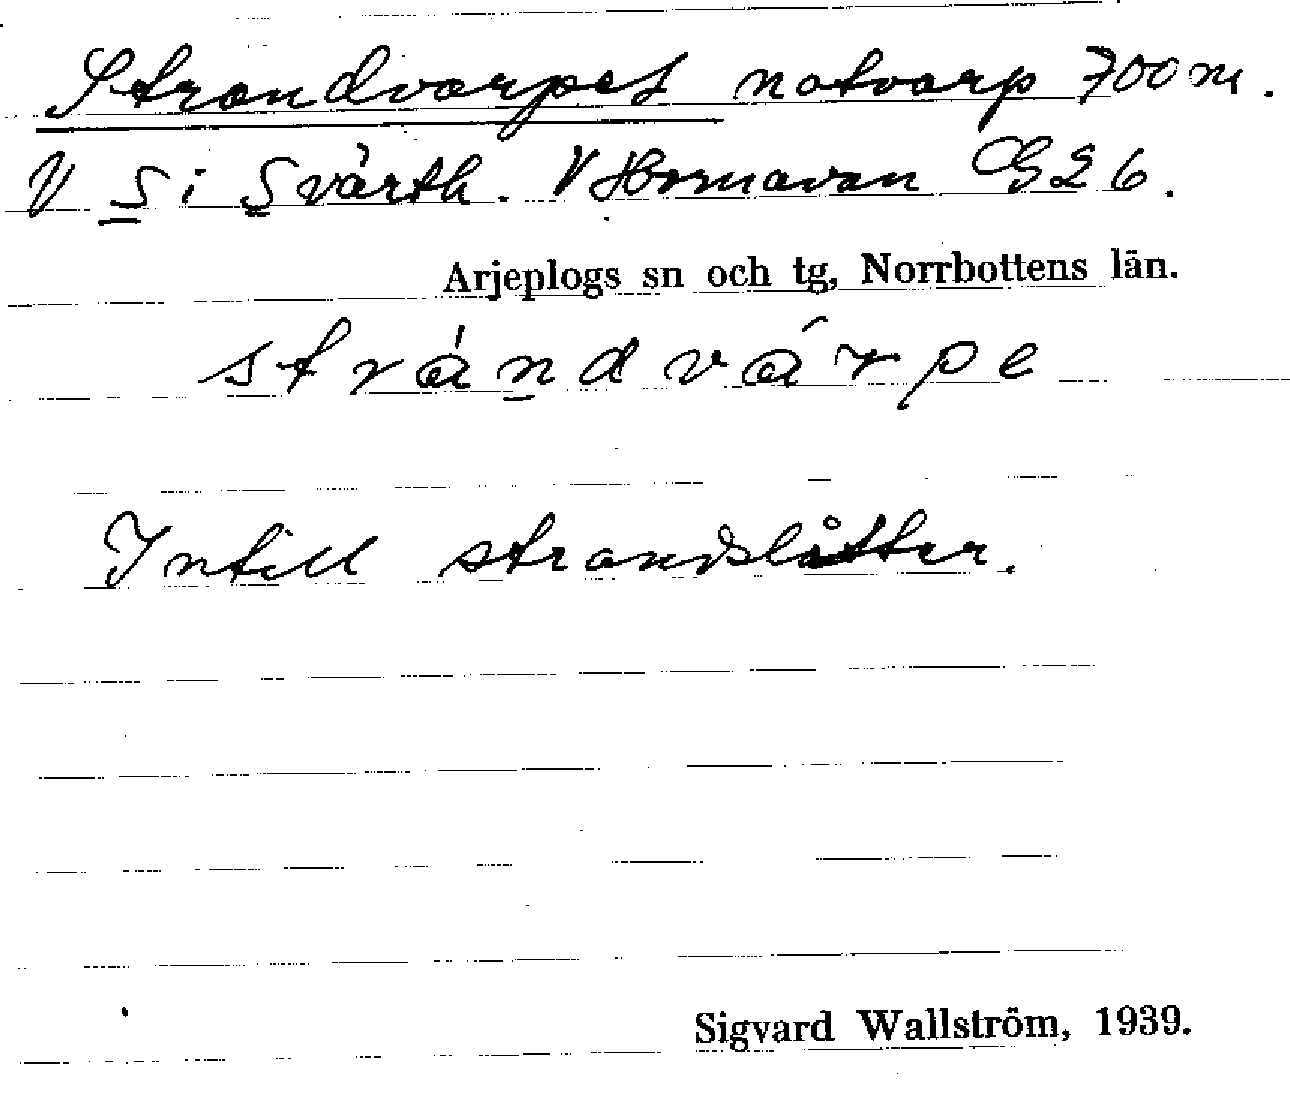 Strandvarpet notvarp 700 m.
V S i Svärth. V Hornavan G26.
Arjeplogs sn och tg, Norrbottens län.
strándvárpe
Intill strandslåtter.
Sigvard Wallström, 1939.